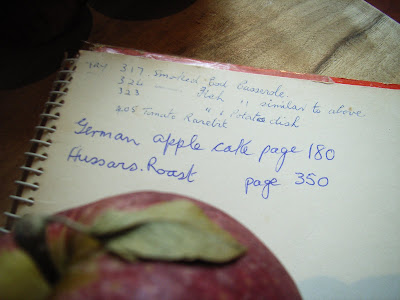 TRY 317. Smoked Cod Casserole.
324 ...... Fish " similar to above
323 " & Potato dish
405 Tomato Rarebit
German apple cake page 180
Hussars. Roast page 350